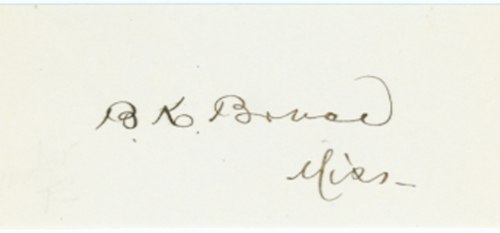 B. K. Bruce
Miss-